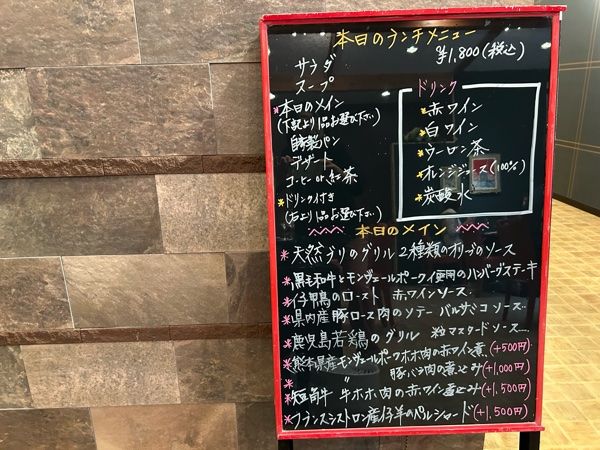 本日のランチメニュー
¥1,800(税込)
サラダ
スープ
*本日のメイン
(下記より1品お選び下さい)
自家製パン
デザート
コーヒー or 紅茶
*ドリンク付き
(右より1品お選び下さい)
ドリンク
*赤ワイン
*白ワイン
*ウーロン茶
*オレンジジュース(100%)
*炭酸水
本日のメイン
*天然ブリのグリル 2種類のオリーブのソース
*黒毛和牛とモンヴェールポーク のハンバーグステーキ
*仔鴨のロースト 赤ワインソース
*県内産豚ロース肉のソテー バルサミコソース
*鹿児島若鶏のグリル 粒マスタードソース
*熊本県産モンヴェールポークホホ肉の赤ワイン煮 (+500円)
* 〃 豚バラ肉の煮込み(+1,000円)
*短角牛 牛ホホ肉の赤ワイン煮込み(+1,500円)
*フランスシストロン産仔羊のペルシャード(+1,500円)